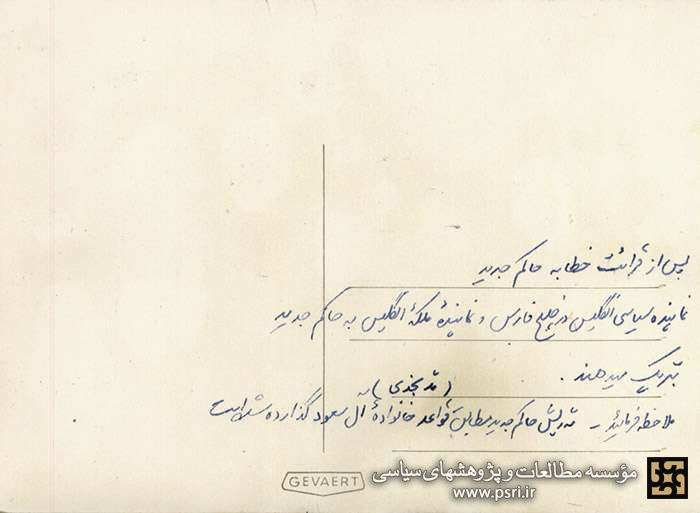 پس از قرائت خطابه حاکم جدید
نماینده سیاسی انگلیس در خلیج فارس و نمایندهٔ ملکهٔ انگلیس به حاکم جدید
تبریک میدهند.
ملاحظه فرمائید - ته ریش حاکم جدید مطابق قواعد خانوادهٔ آل سعود گذارده شده است
GEVAERT
مؤسسه مطالعات و پژوهشهای سیاسی
www.psri.ir